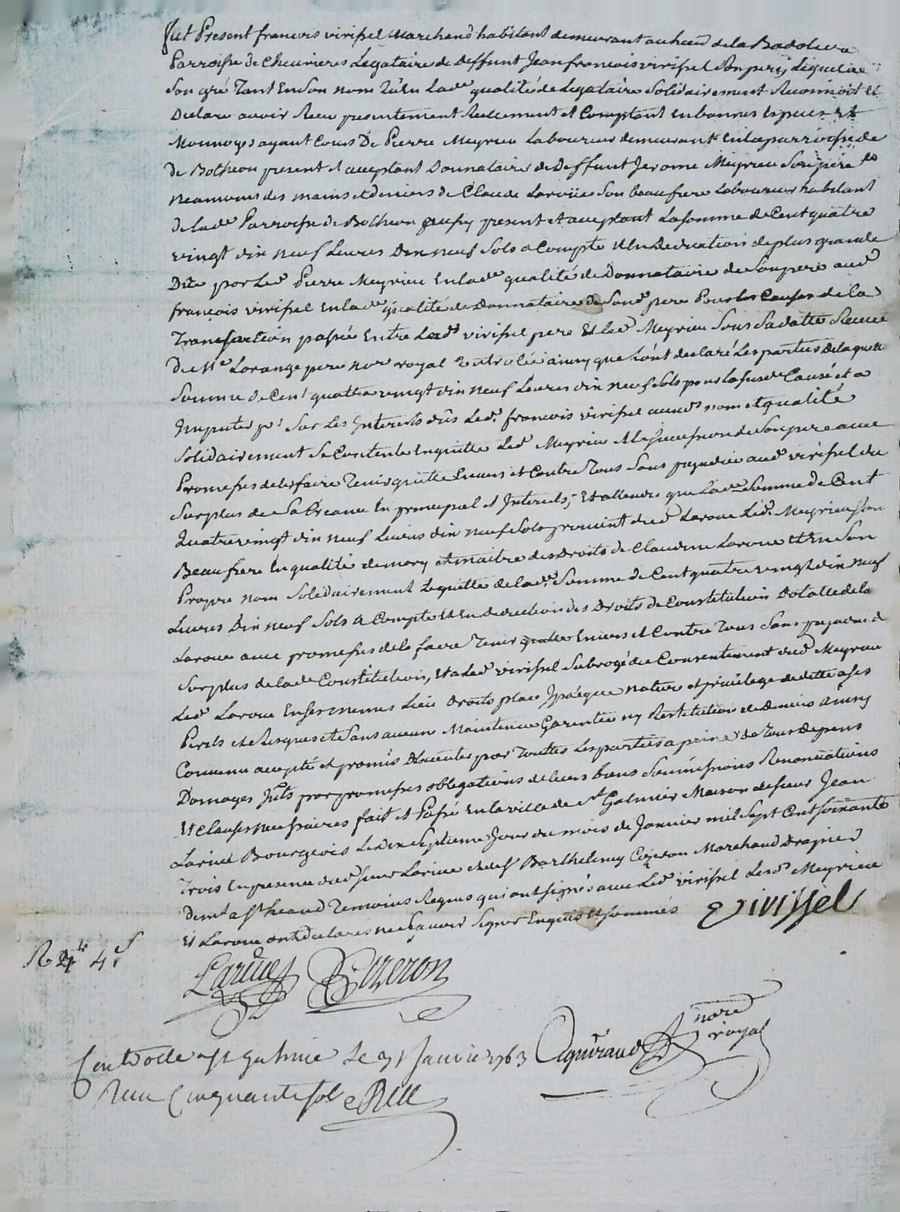 fut Present francois virissel Marchand habitant demeurant au lieu de la Badoliere
Parroisse de Chevrieres Legataire de deffunt Jean francois virissel Son pere, Lequel de
Son gré Tant En Son nom Qu'En Lade qualité de Legataire Solidairement Reconnoit et
Declare avoir Recu presentement Reellement et Comptant En bonnes Especes et
Monnoyes ayant Cours De Pierre Meyrieu Laboureur demeurant En la parroisse de
de Botheon present et acceptant Donnataire de Deffunt Jerome Meyrieu Son pere
neanmoins des mains et deniers de Claude Laroüe Son beaufrere Laboureur habitant
de lade Parroisse de Botheon aussy present et acceptant La somme de Cent quatre
vingt dix neuf Livres Dix neuf Sols a Compte et En Deduction de plus grande
Düe par Led Pierre Meyrieu En lade qualité de Donnataire de Son pere aud
francois virissel En lade qualité de Donnataire de Sond pere Pour les Causes de la
Transaction passée Entre Led virissel pere Et led Meyrieu Sous Sa datte Recüe
De Me Lorange pere nore royal ainsy que L'ont declaré Les parties De laquelle
Somme de Cent quatre vingt dix neuf Livres dix neuf Sols pour la susde Cause et a
Imputer Sur Les Interests dûs Led francois virissel auxds nom et qualité
Solidairement Se Contente En quitte Led Meyrieu et la Succession de Son pere avec
Promesses de les faire Tenir quitte Envers et Contre Tous Sans prejudice aud virissel du
Surplus de Sa Creance En principal et Interests, Et attendu que Lade Somme de Cent
Quatre vingt dix neuf Livres dix neuf Sols provient dud Laroüe Led Meyrieu Son
Beaufrere En qualité de mary et maitre des Droits de Claudine Laroüe Et En Son
Propre nom Solidairement Le quitte de lade Somme de Cent quatre vingt dix neuf
Livres Dix neuf Sols a Compte et En deduction des Droits de Constitution Dotalle de la
Laroüe avec promesses de la faire Tenir quitte Envers et Contre Tous Sans prejudice du
Surplus de lade Constitution, Et a Led virissel Subrogé du Consentement dud Meyrieu
Led Laroüe En Ses mêmes Lieu Droits place Ipoteque nature et privilege de dette a Ses
Perils et Risques et Sans aucune Maintenue Garentie ny Restitution de deniers ainsy
Convenu accepté et promis D'Executer par Toutes Les parties a peine de Tous depens
Domages Ints par promesses obligations de leurs biens Soumissions Renonciations
Et Clauses necessaires fait et Passé En la ville de St Galmier Maison de sieur Jean
Larüe Bourgeois Le dix Septieme Jour du mois de Janvier mil Sept Cent Soixante
Trois En presence dud sieur Larüe et de Sr Barthelemy Cizeron Marchand Drapier
demt a St heand Temoins Requis qui ont Signé avec Led virissel Lesds Meyrieu
Et Laroüe ont declarés ne Sçavoir Signer Enquis et Sommés
virissel
R 2tt 4s
Larüe
Cizeron
nore royal
Controllé a St Galmier Le 31 Janvier 1763
Recu Cinquante sol